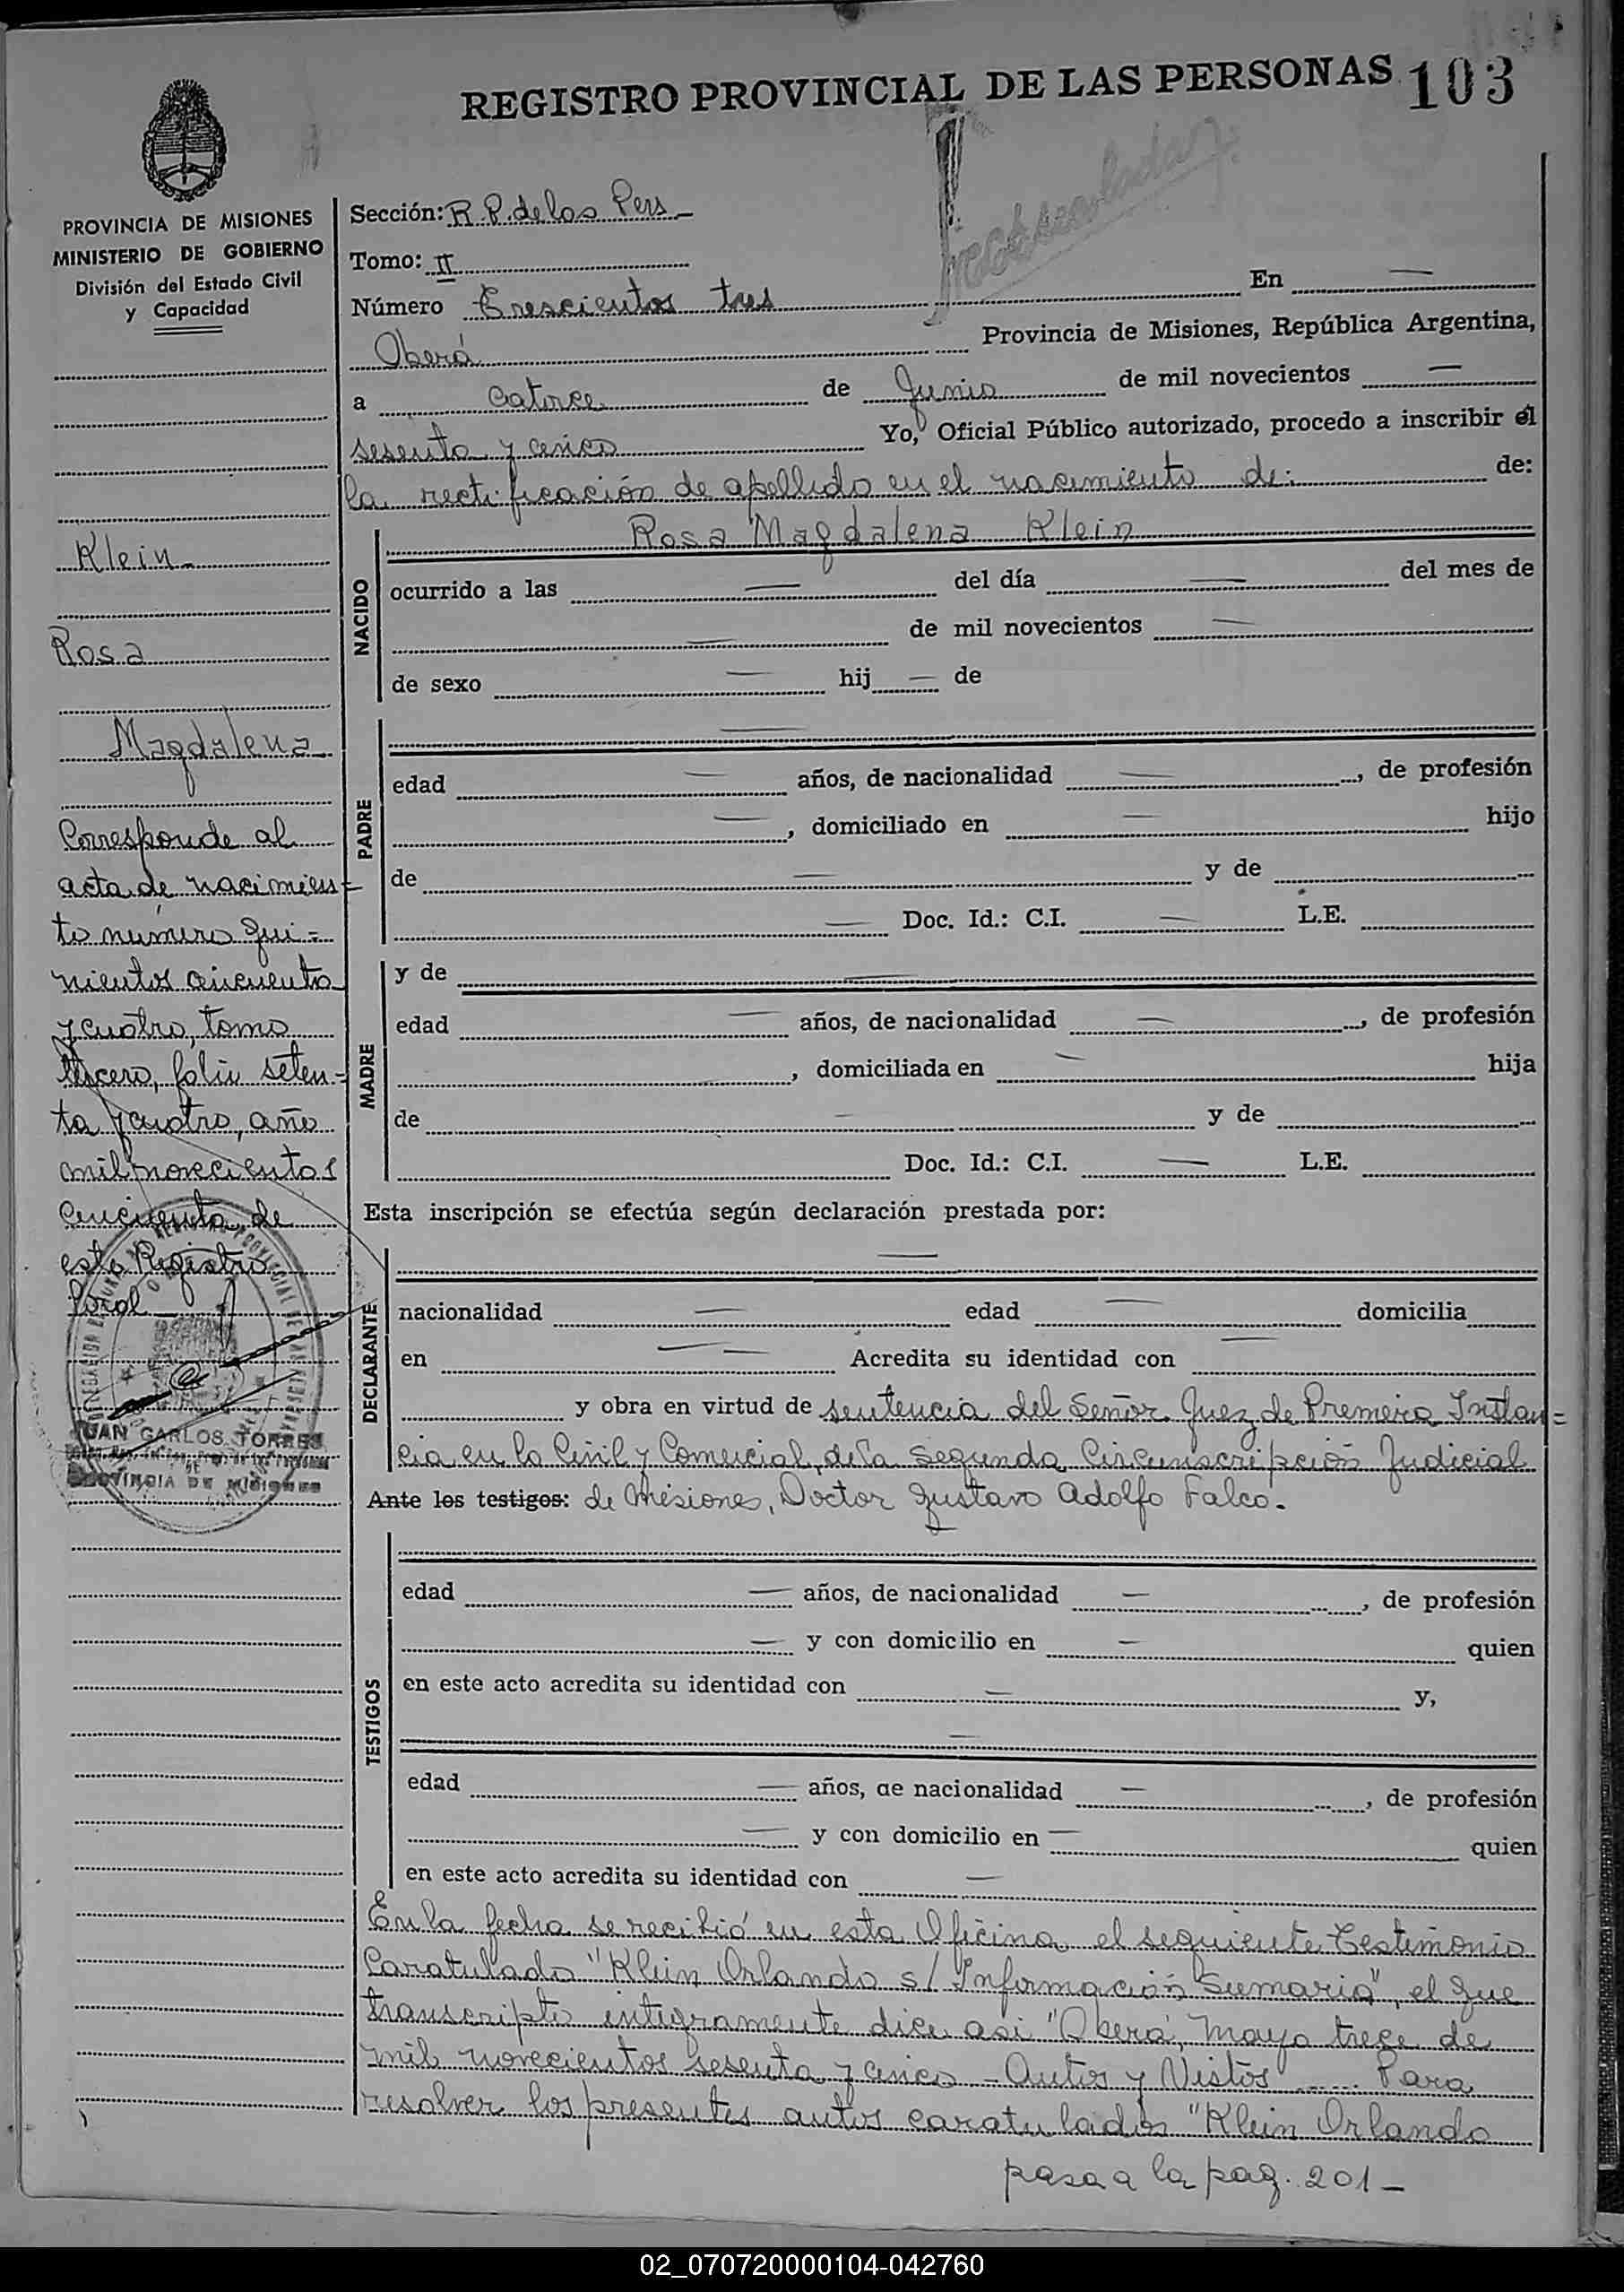 REGISTRO PROVINCIAL DE LAS PERSONAS 103
PROVINCIA DE MISIONES
MINISTERIO DE GOBIERNO
División del Estado Civil
y Capacidad
Klein
Rosa
Magdalena
Corresponde al
acta de nacimien-
to número qui=
nientos cincuenta
y cuatro, tomo
tercero, folio seten-
ta y cuatro, año
mil novecientos
cincuenta, de
este Registro
Local
JUAN CARLOS TORRES
PROVINCIA DE MISIONES
Sección: R.P. de las Pers -
Tomo: II
Número Trescientos tres En —
Oberá Provincia de Misiones, República Argentina,
a catorce de Junio de mil novecientos —
sesenta y cinco Yo, Oficial Público autorizado, procedo a inscribir el
la rectificación de apellido en el nacimiento de: de:
Rosa Magdalena Klein
NACIDO
ocurrido a las — del día — del mes de
— de mil novecientos —
de sexo — hij — de
PADRE
—
edad — años, de nacionalidad —, de profesión
—, domiciliado en — hijo
de — y de
— Doc. Id.: C.I. — L.E.
MADRE
y de —
edad — años, de nacionalidad —, de profesión
, domiciliada en — hija
de — y de
Doc. Id.: C.I. — L.E.
Esta inscripción se efectúa según declaración prestada por:
DECLARANTE
—
nacionalidad — edad — domicilia
en — — Acredita su identidad con —
y obra en virtud de sentencia del Señor Juez de Primera Instan=
cia en lo Civil y Comercial, de la Segunda Circunscripción Judicial
Ante los testigos: de Misiones, Doctor Gustavo Adolfo Falco.
TESTIGOS
edad — años, de nacionalidad —, de profesión
— y con domicilio en — quien
en este acto acredita su identidad con — y,
—
edad — años, de nacionalidad —, de profesión
— y con domicilio en — quien
en este acto acredita su identidad con —
En la fecha se recibió en esta Oficina el siguiente Testimonio
Caratulado "Klein Orlando s/ Información Sumaria", el que
transcripto integramente dice asi "Oberá, mayo trece de
mil novecientos sesenta y cinco - Autos y Vistos ...... Para
resolver los presentes autos caratulados "Klein Orlando
pasa a la pag. 201 -
02_070720000104-042760